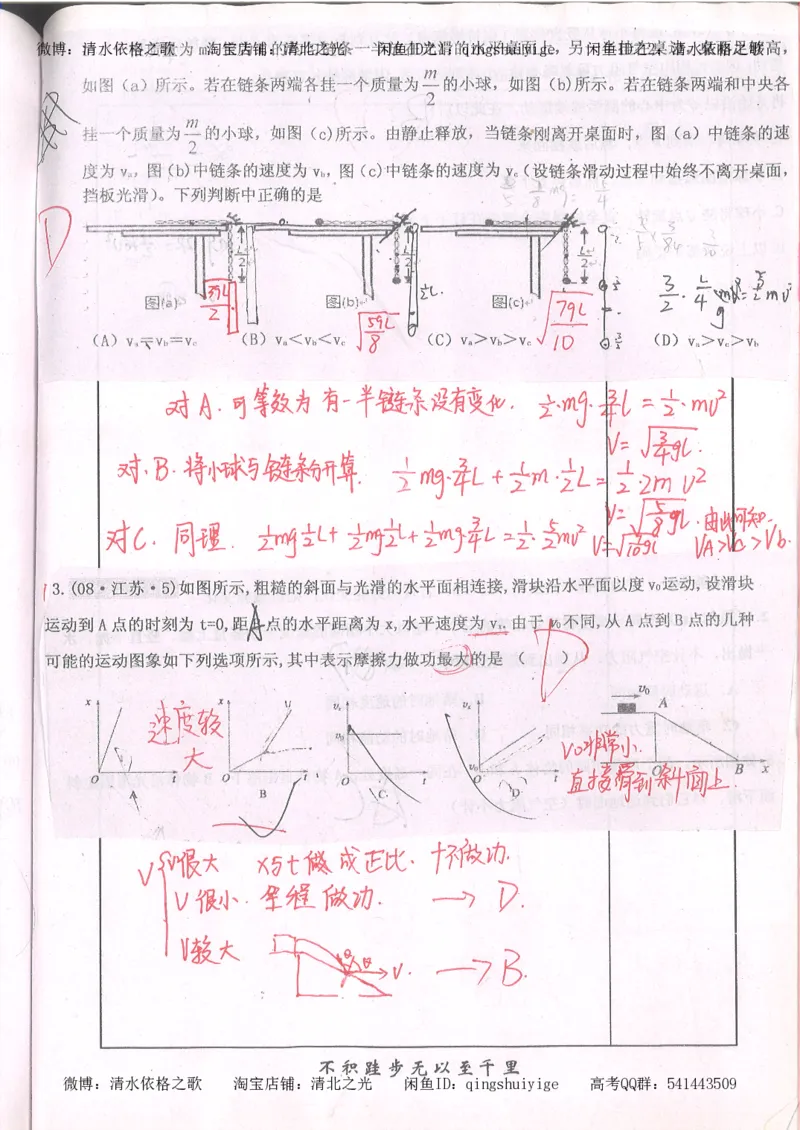 微博：清水依格之歌 淘宝店铺：清北之光 闲鱼ID：qingshuiyige
如图（a）所示。若在链条两端各挂一个质量为 m/2 的小球，如图（b)所示。若在链条两端和中央各
挂一个质量为 m/2 的小球，如图（c)所示。由静止释放，当链条刚离开桌面时，图（a）中链条的速
度为 vₐ，图(b)中链条的速度为 v_b，图(c)中链条的速度为 v_c（设链条滑动过程中始终不离开桌面，
挡板光滑）。下列判断中正确的是
D
图(a) 图(b) 图(c)
（A）vₐ=v_b=v_c （B）vₐ<v_b<v_c （C）vₐ>v_b>v_c （D）vₐ>v_c>v_b
对A. 可等效为 有一半链条没有变化. ½·mg·¾L = ½·mv²
V=√(¾gL).
对.B. 将小球与链条分开算. ½mg·¾L + ½m·½L = ½·2m v²
V=√(⅝gL).由此可知.
对C. 同理. ½mg½L+ ½mg½L+½mg·¾L = ½·5/2mv² VA>Vc>Vb.
3.(08·江苏·5)如图所示,粗糙的斜面与光滑的水平面相连接,滑块沿水平面以度 v₀运动,设滑块
运动到 A 点的时刻为 t=0,距A点的水平距离为 x,水平速度为 vₓ.由于 v₀不同,从 A 点到 B 点的几种
可能的运动图象如下列选项所示,其中表示摩擦力做功最大的是 （ D ）
速度较
大
V₀非常小.
直接滑到斜面上
A B C D
V很大 x与t做成正比. 不做功.
V很小. 全程做功. → D.
V较大 → B.
不积跬步无以至千里
微博：清水依格之歌 淘宝店铺：清北之光 闲鱼ID：qingshuiyige 高考QQ群：541443509